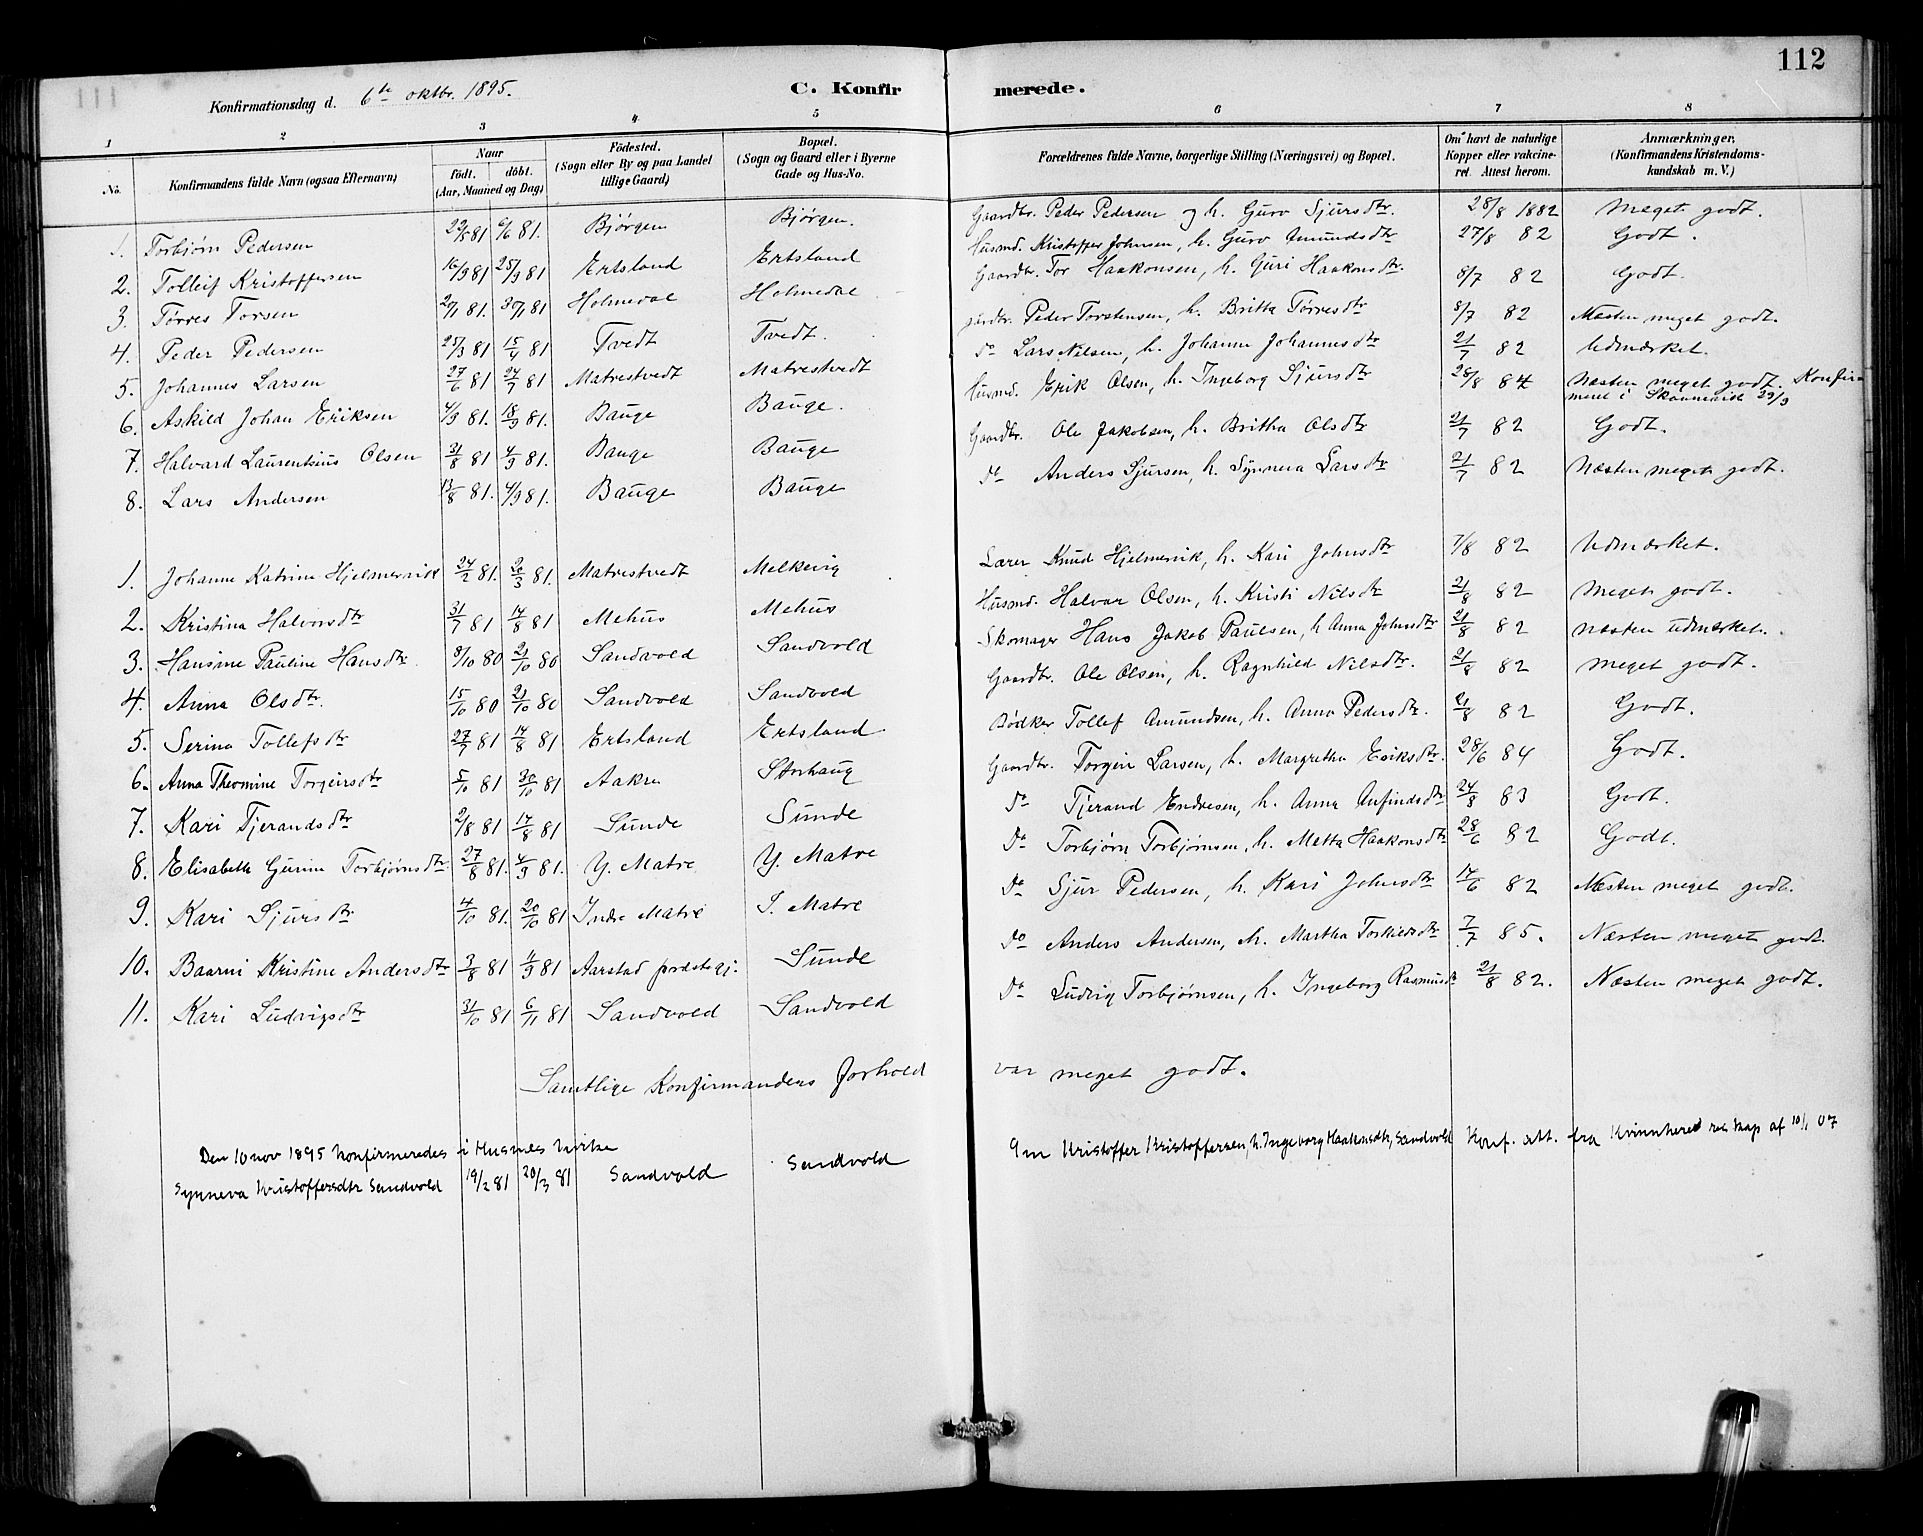 112
Konfirmationsdag d. 6te oktbr. 1895. C. Konfirmerede.
1 2 3 4 5 6 7 8
No. Konfirmandens fulde Navn (ogsaa Efternavn) Naar födt. döbt. (Aar, Maaned og Dag) Födested. (Sogn eller By og paa Landet tillige Gaard) Bopæl. (Sogn og Gaard eller i Byerne Gade og Hus-No. Forældrenes fulde Navne, borgerlige Stilling (Næringsvei) og Bopæl. Om havt de naturlige Kopper eller vakcineret. Attest herom. Anmærkninger. (Konfirmandens Kristendomskundskab m. V.)
1. Torbjørn Pedersen 22/5 81 6/6 81. Bjørgen Bjørgen. Gaardbr. Peder Pedersen og h. Guro Sjursdtr. 28/8 1882 Meget godt.
2. Tolleif Kristoffersen 16/9 81 25/9 81 Ertsland Ertsland Husmd. Kristoffer Johnsen, h. Guro Amundsdtr 27/8 82 Godt.
3. Tørres Torsen 20/1 81. 30/1 81 Holmedal Holmedal Gaardbr. Tor Haakonsen, h. Guri Haakonsdtr. 8/7 82 Godt.
4. Peder Pedersen 25/3 81 15/4 81 Tvedt Tvedt. Peder Torstensen, h. Britta Tørresdtr 8/7 82 Næsten meget godt.
5. Johannes Larsen 27/6 81 24/7 81 Matrestvedt Matrestvedt Do Lars Nilsen, h. Johanne Johannesdtr 21/7 82 Udmærket.
6. Askild Johan Eriksen 4/9 81. 18/9 81. Bauge Bauge. Husmd. Erik Olsen, h. Ingeborg Sjursdtr 28/8 84 Næsten meget godt. Konfirmeret i Skaanevik 29/9
7. Halvard Laurentsius Olsen 31/8 81 4/9 81. Bauge Bauge Gaardbr. Ole Jakobsen, h. Britha Olsdtr 21/7 82 Godt.
8. Lars Andersen 13/8 81. 4/9 81. Bauge Bauge Do Anders Sjursen, h. Synneva Larsdtr 21/7 82 Næsten meget godt.
1. Johanne Katrine Hjelmervik 24/2 81. 20/3 81. Matrestvedt Melkevig Lærer Knud Hjelmervik, h. Kari Johnsdtr 7/8 82 Udmærket.
2. Kristina Halvorsdtr 31/7 81 14/8 81 Mehus Mehus Husmd. Halvar Olsen, h. Kristi Nilsdtr 21/8 82 Meget godt.
3. Hansine Pauline Hansdtr. 8/10 80 21/10 80 Sandvold Sandvold Skomager Hans Jakob Paulsen, h Anna Johnsdtr 21/8 82 Næsten udmærket.
4. Anna Olsdtr. 15/10 80 21/10 80 Sandvold Sandvold Gaardbr. Ole Olsen, h. Ragnhild Nilsdtr. 21/8 82 Meget godt.
5. Serina Tollefsdtr 27/7 81 14/8 81 Ertsland Ertsland Bødker Tollef Amundsen, h. Anna Pedersdtr. 21/8 82 Godt.
6. Anna Theomine Torgeirsdtr 5/10 81 30/10 81 Aakre Storhaug Gaardbr. Torgeir Larsen, h. Margretha Eriksdtr. 28/6 84 Godt.
7. Kari Tjerandsdtr 2/8 81 14/8 81 Sunde Sunde Do Tjerand Endresen, h. Anna Anfindsdtr 24/8 83 Godt.
8. Elisabeth Gurine Torbjørnsdtr 27/8 81. 4/9 81. Y. Matre Y. Matre Do Torbjørn Torbjørnsen, h. Metta Haakonsdtr 28/6 82 Godt.
9. Kari Sjursdtr 4/10 81. 20/10 81 Indre Matre I. Matre Do Sjur Pedersen, h. Kari Johnsdtr 17/6 82 Næsten meget godt.
10. Baarni Kristine Andersdtr 3/8 81 4/9 81 Aarstad præstegj. Sunde Do Anders Andersen, h. Martha Torkildsdtr 7/7 85. Næsten meget godt.
11. Kari Ludvigsdtr 31/10 81 6/11 81 Sandvold Sandvold Do Ludvig Torbjørnsen, h. Ingeborg Rasmusdtr 21/8 82. Næsten meget godt.
Samtlige Konfirmanders Forhold var meget godt.
Den 10 nov 1895 konfirmeredes i Husnes kirke
Synneva Kristoffersdtr Sandvold 19/2 81 20/3 81 Sandvold Sandvold Gm Kristoffer Kristoffersen, h. Ingeborg Haakonsdtr, Sandvold Konf. att. fra Kvinnhered af 10/1 07